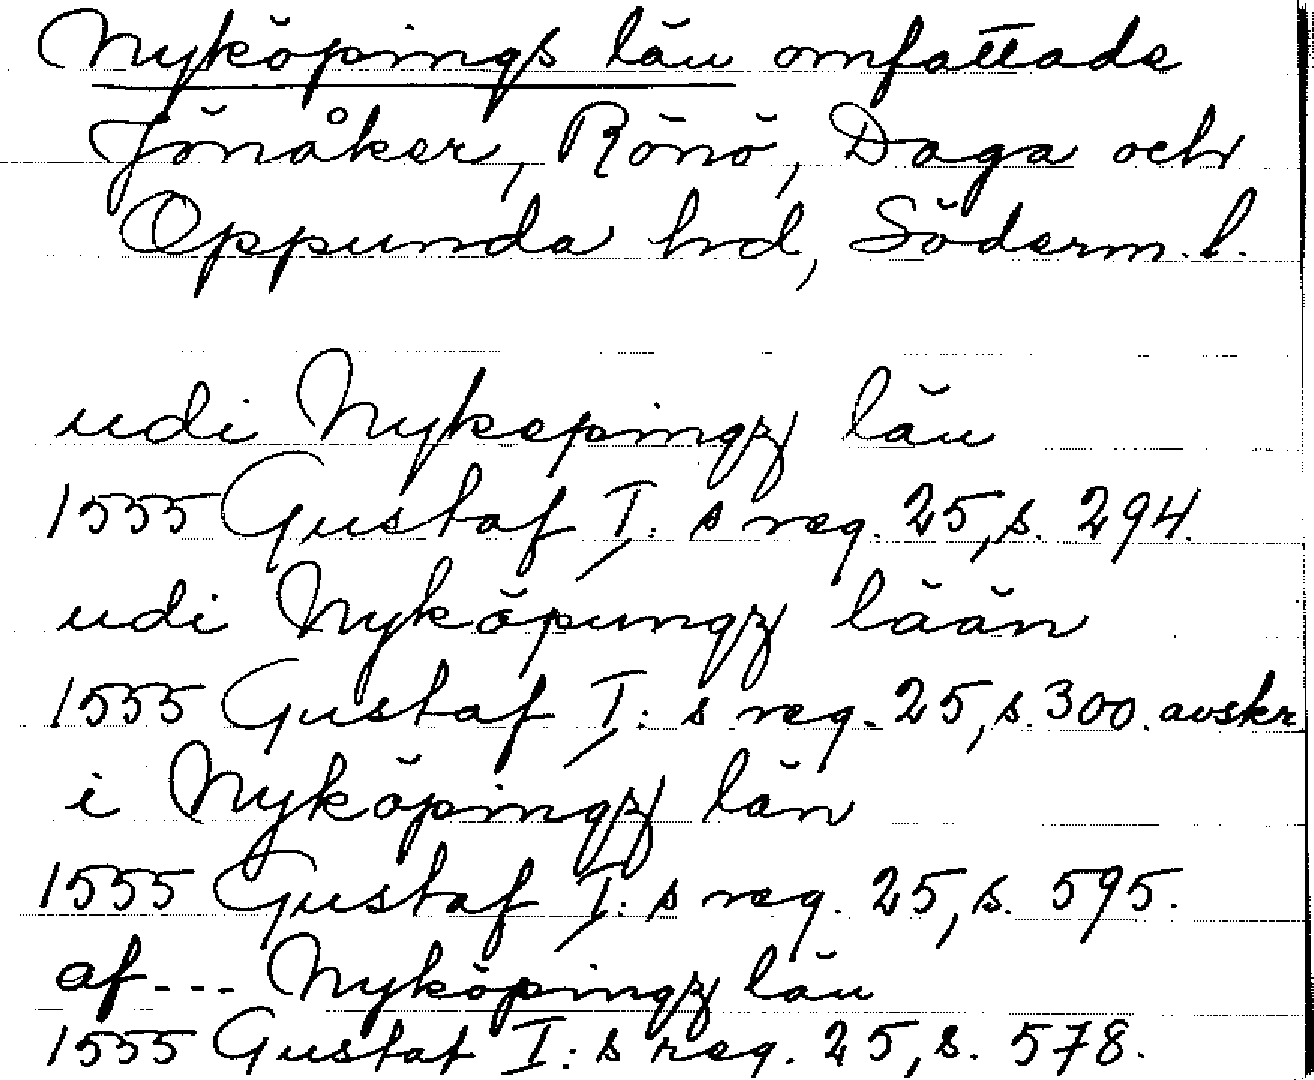 Nyköpings län omfattade
Jönåker, Rönö, Daga och
Oppunda hd, Söderm.l.
udi Nykepingz län
1555 Gustaf I:s reg. 25, s. 294.
udi Nyköpungz lään
1555 Gustaf I:s reg. 25, s. 300. avskr
i Nyköpingz län
1555 Gustaf I:s reg. 25, s. 595.
af--- Nyköpingz län
1555 Gustaf I:s reg. 25, s. 578.